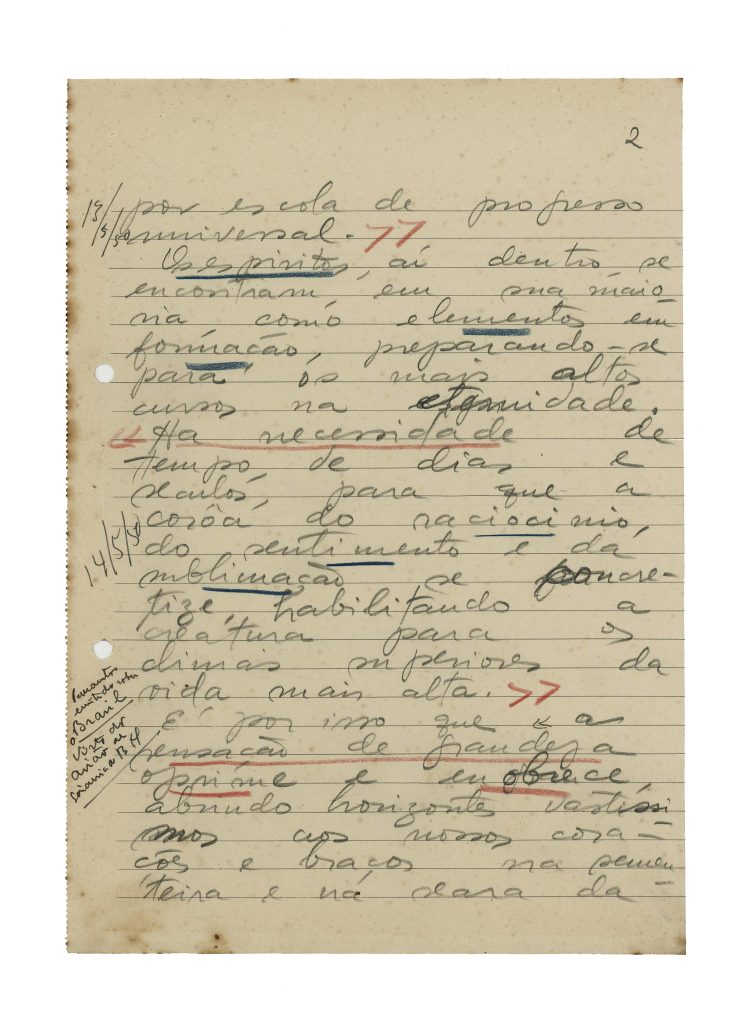 2
por escola de progresso
universal. »
Os espiritos, aí dentro se
encontram, em sua maio
ria, como elementos em
formação, preparando-se
para os mais altos
cursos na eternidade.
« Ha necessidade de
tempo, de dias e
seculos, para que a
corôa do raciocinio,
do sentimento e da
sublimação se concre-
tize, habilitando a
creatura para os
climas superiores da
vida mais alta. »
E' por isso que a
sensação de grandeza
oprime e enobrece,
abrindo horizontes vastissi
mos aos nossos cora-
ções e braços na semen
teira e na seara da
13/5/50
14/5/50
Brasil
visto do
avião